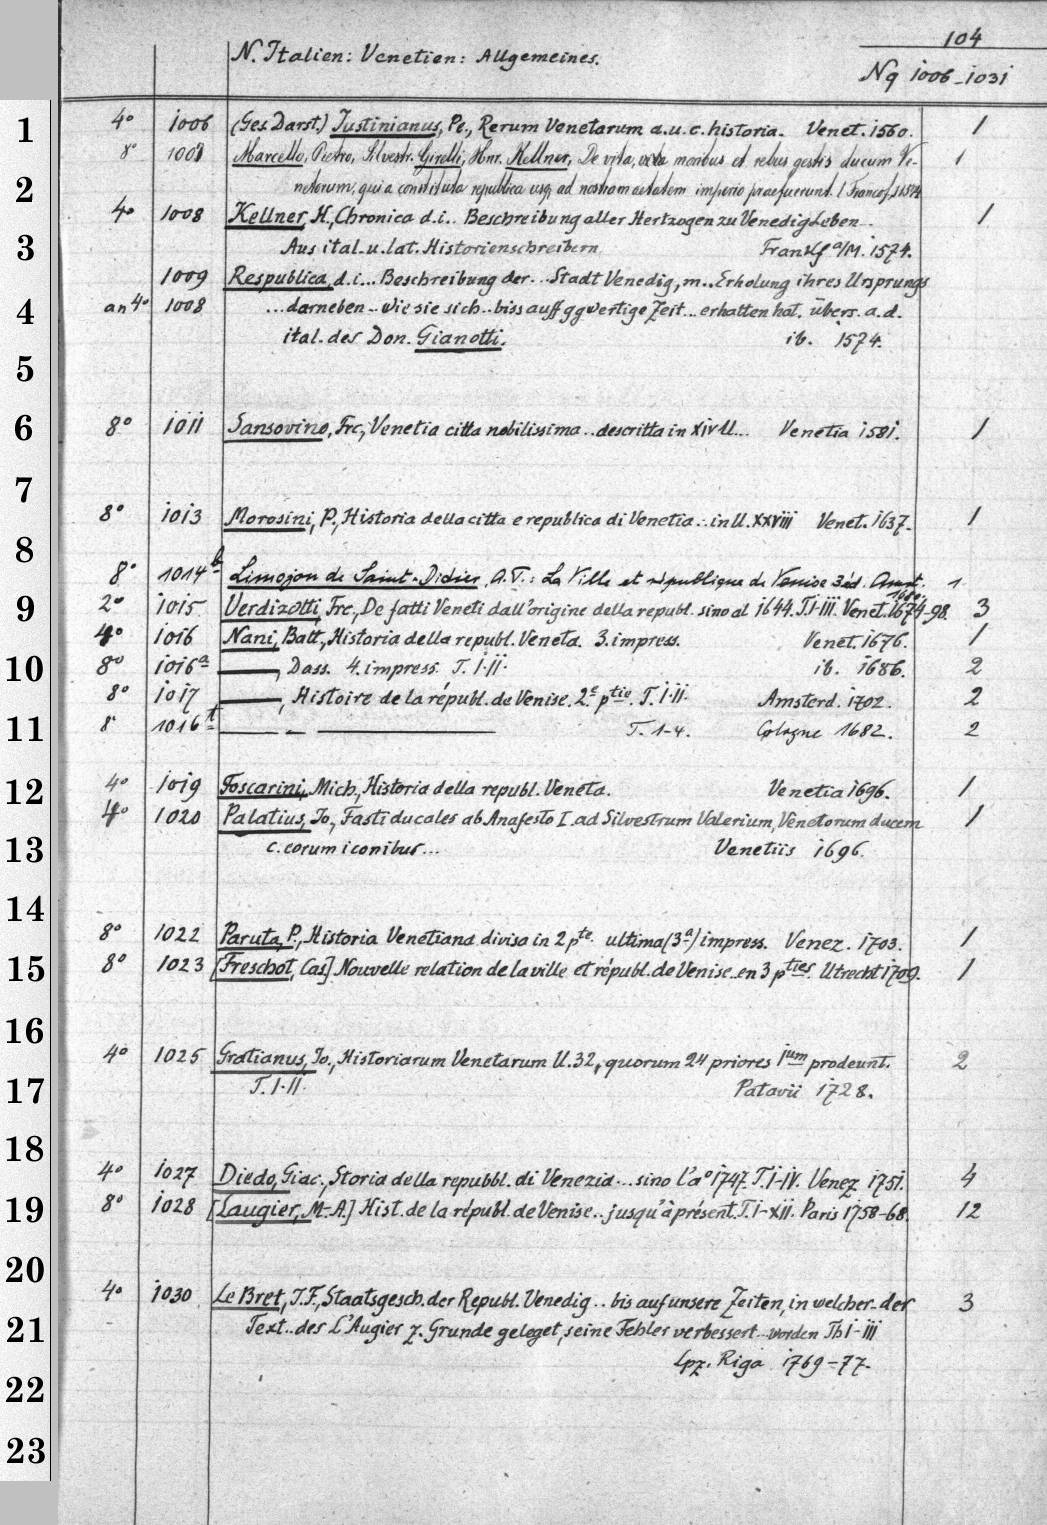 104
N. Italien: Venetien: Allgemeines.
Nq 1006-1031
1 4° 1006 (Ges. Darst.) Justinianus, Pe., Rerum Venetarum a.u.c. historia. Venet. 1560. 1
8° 1007 Marcello, Pietro, Silvestr. Girelli, Hnr. Kellner, De vita, moribus et rebus gestis ducum Ve- 1
2 netorum, qui a constituta republica usq ad nostram aetatem imperio praefuerunt. / Francof. 1574
4° 1008 Kellner, H., Chronica d.i.. Beschreibung aller Hertzogen zu Venedig Leben.. 1
3 Aus ital. u. lat. Historienschreibern Frankf a/M. 1574.
1009 Respublica, d.i... Beschreibung der... Stadt Venedig, m.. Erholung ihres Ursprungs
4 an 4° 1008 ...darneben.. wie sie sich.. biss auff ggwertige Zeit... erhatten hat. übers. a.d.
ital. des Don. Gianotti. ib. 1574.
5
6 8° 1011 Sansovino, Frc., Venetia citta nobilissima.. descritta in XIV ll... Venetia 1581. 1
7
8° 1013 Morosini, P., Historia della citta e republica di Venetia... in ll. XXVIII Venet. 1637. 1
8
8° 1014b Limojon de Saint-Didier, A.T.: La Ville et république de Venise 3 éd. Amst. 1680. 1
9 2° 1015 Verdizotti, Frc., De fatti Veneti dall'origine della republ. sino al 1644. T.I-III. Venet. 1674-98. 3
4° 1016 Nani, Batt., Historia della republ. Veneta. 3. impress. Venet. 1676. 1
10 8° 1016a ——, Dass. 4. impress. T. I-II. ib. 1686. 2
8° 1017 ——, Histoire de la républ. de Venise. 2e ptie. T. I-II. Amsterd. 1702. 2
11 8° 1016t —— – —— T. 1-4. Cologne 1682. 2
12 4° 1019 Foscarini, Mich., Historia della republ. Veneta. Venetia 1696. 1
4° 1020 Palatius, Jo., Fasti ducales ab Anafesto I. ad Silvestrum Valerium, Venetorum ducem 1
13 c. eorum iconibus... Venetiis 1696.
14
8° 1022 Paruta, P., Historia Venetiana divisa in 2 pte. ultima (3a) impress. Venez. 1703. 1
15 8° 1023 [Freschot, Cas] Nouvelle relation de la ville et républ. de Venise.. en 3 pties. Utrecht 1709. 1
16
4° 1025 Gratianus, Jo., Historiarum Venetarum ll. 32, quorum 24 priores 1um prodeunt. 2
17 T. I-II. Patavii 1728.
18
4° 1027 Diedo, Giac., Storia della repubbl. di Venezia... sino l'a° 1747. T. I-IV. Venez. 1751. 4
19 8° 1028 [Laugier, M.-A.] Hist. de la républ. de Venise.. jusqu'à présent. T. I-XII. Paris 1758-68. 12
20
4° 1030 Le Bret, J.F., Staatsgesch. der Republ. Venedig.. bis auf unsere Zeiten, in welcher.. der 3
21 Text.. des L'Augier z. Grunde geleget, seine Fehler verbessert.. worden Th I-III
Lpz. Riga 1769-77.
22
23